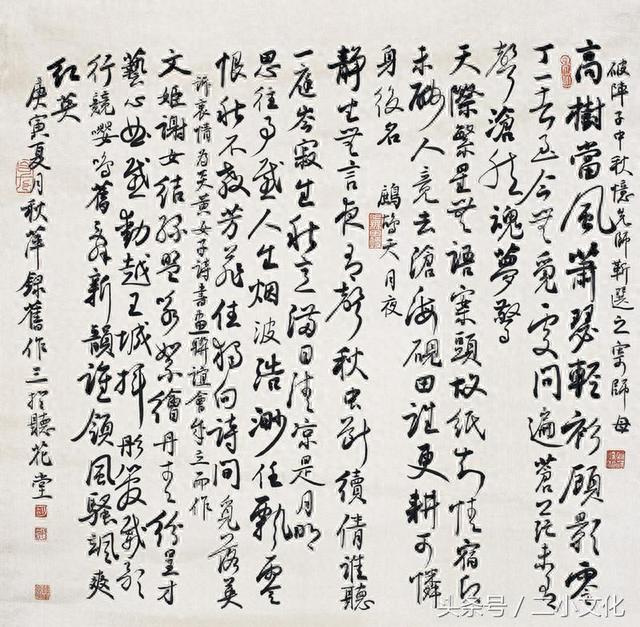 破陣子中秋憶先師靳選之寄師母
高樹當風蕭瑟輕衫顧影零
丁一去至今無覓處問遍蒼茫未有
聲滄然魂夢驚
天際繁星無語案頭故紙知情宿
未酬人竟去滄海硯田誰更耕可憐
身後名
鷓鴣天月夜
靜坐無言夜有聲秋虫斷續倩誰聽
一庭岑寂生秋意滿目清凉是月明
思往事感人生烟波浩渺任飄零
恨秋不教芳菲住獨向詩間覓落英
訴衷情為炎黃女子詩書畫聯誼會年立而作
文姬謝女結絲盟絮繪丹青紛呈才
藝心曲感動越王城揮彤管
行競嚶鳴舊新韻誰領風騷颯爽
紅英
庚寅夏月秋萍錄舊作三於聽花堂
头条号 / 二小文化